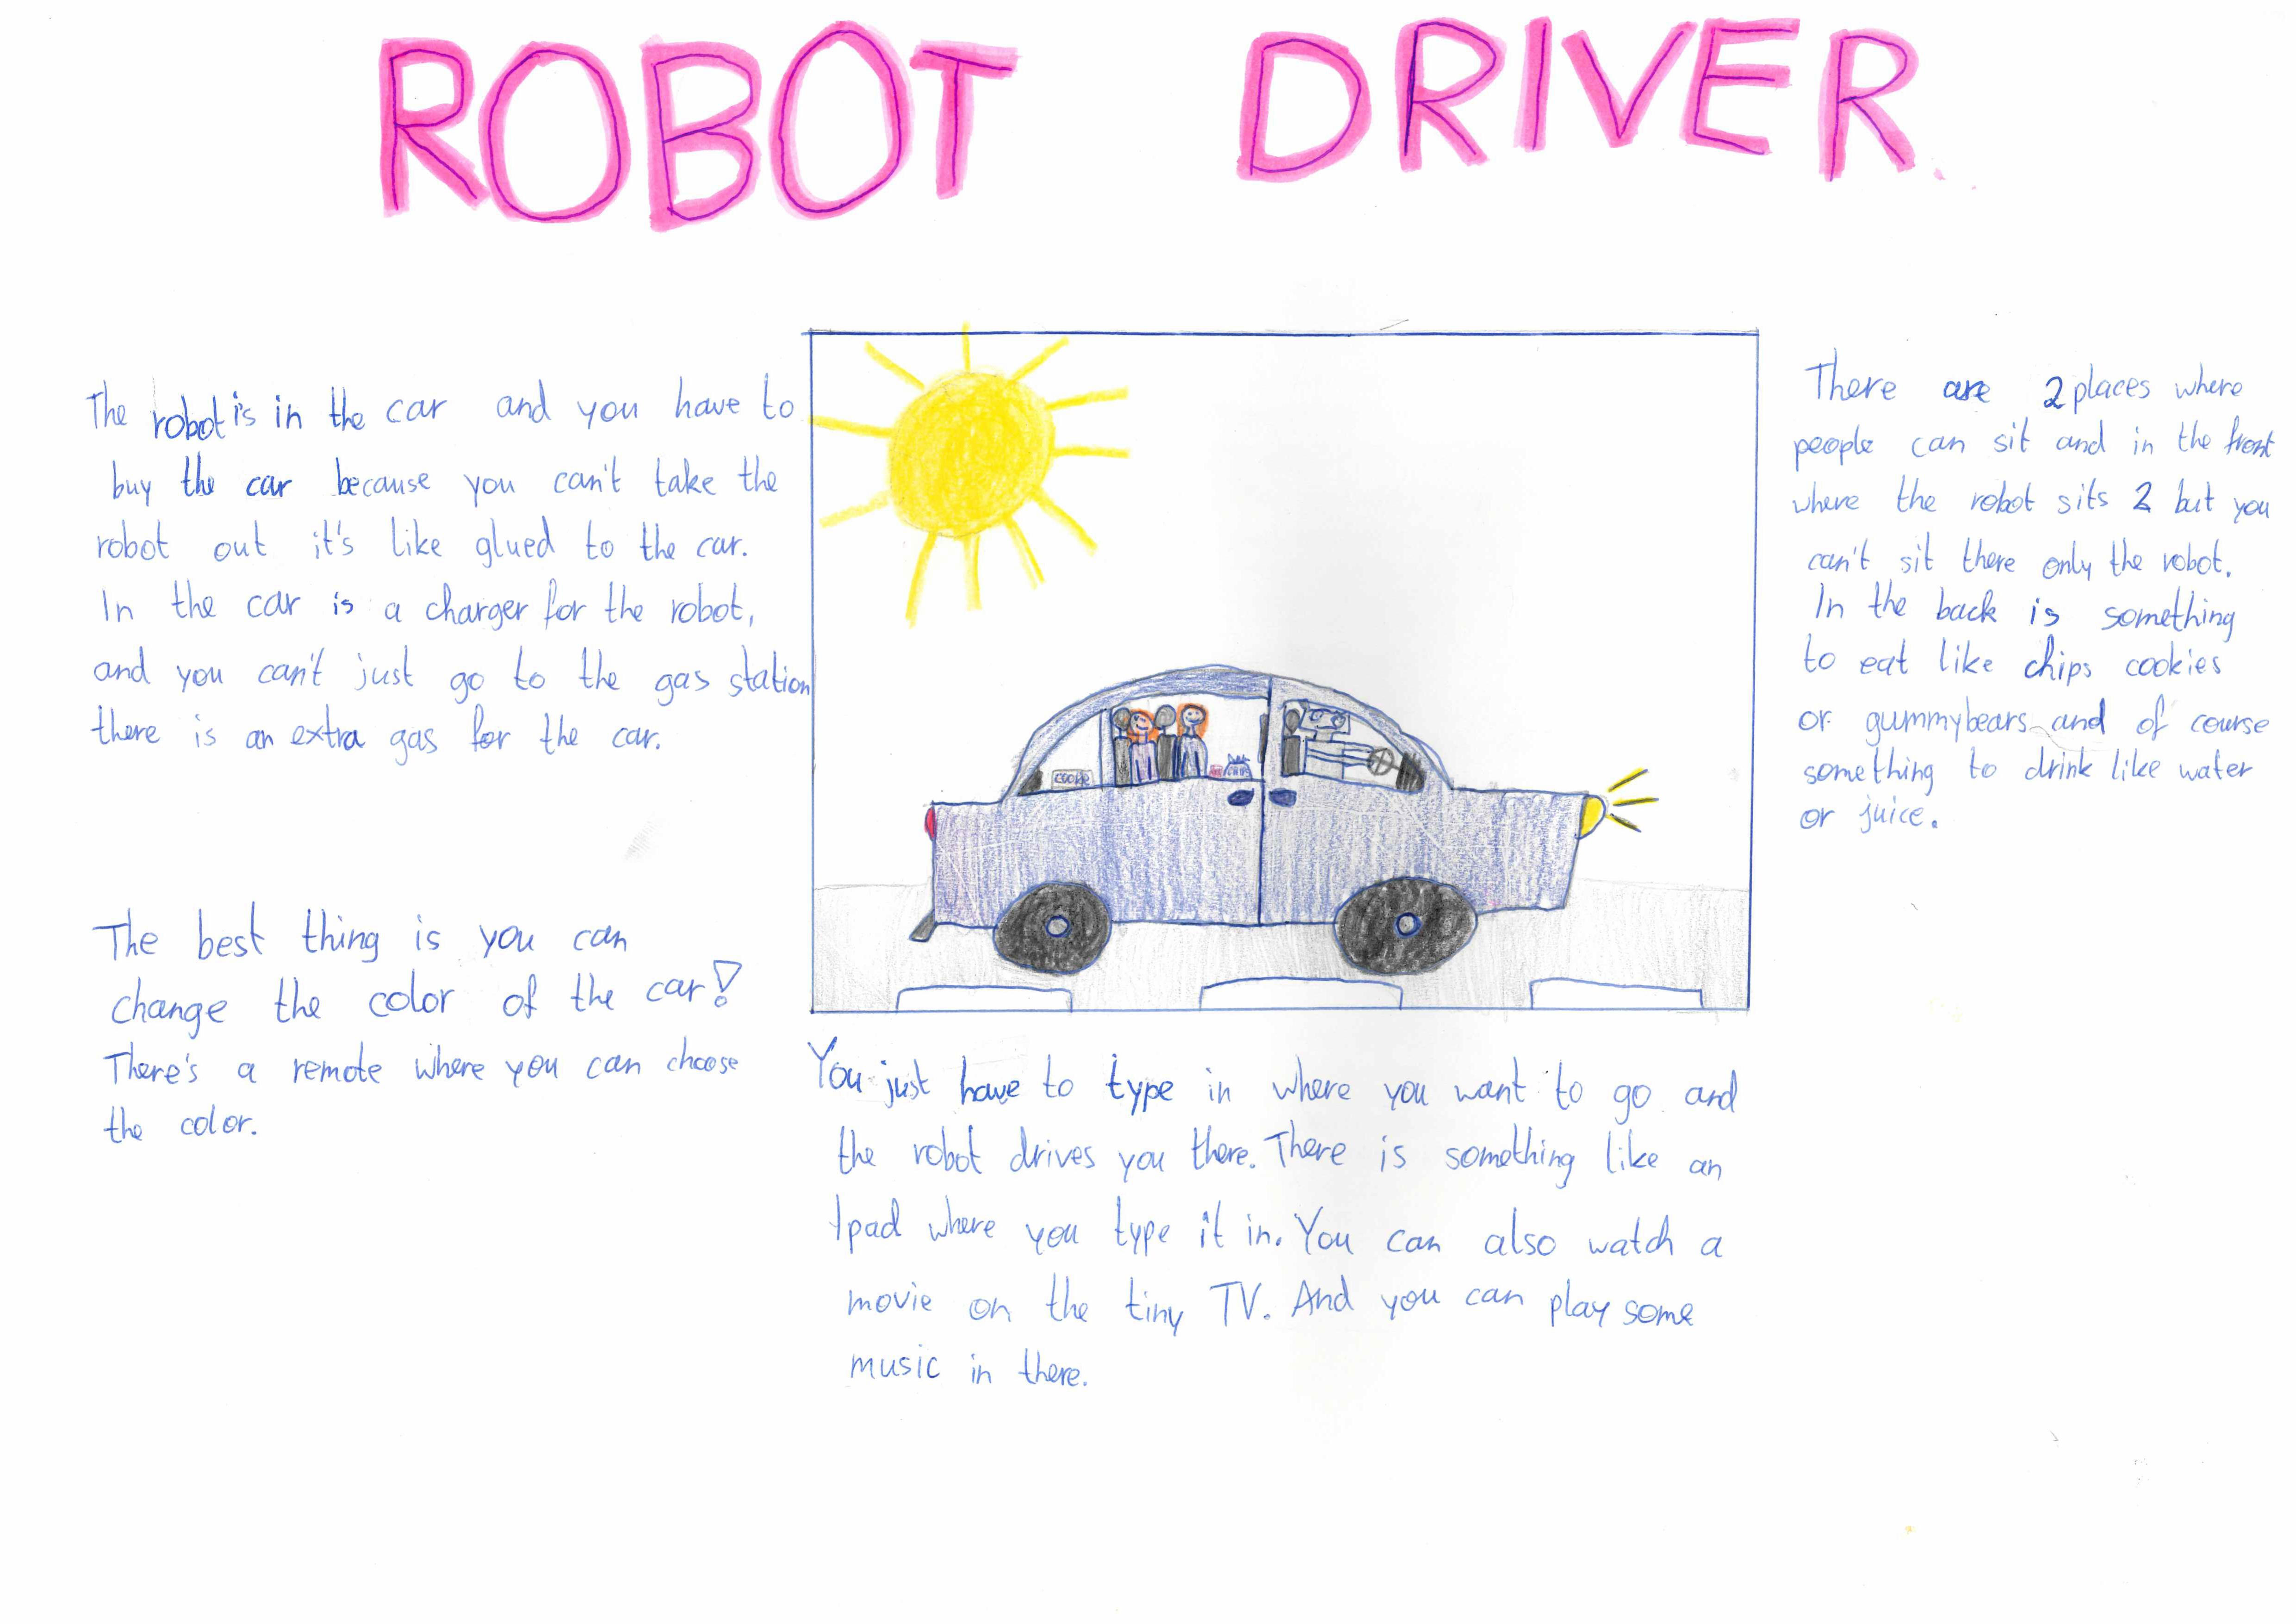 ROBOT DRIVER
The robot is in the car and you have to
buy the car because you can't take the
robot out it's like glued to the car.
In the car is a charger for the robot,
and you can't just go to the gas station
there is an extra gas for the car.
The best thing is you can
change the color of the car!
There's a remote where you can choose
the color.
COOKIE
You just have to type in where you want to go and
the robot drives you there. There is something like an
Ipad where you type it in. You can also watch a
movie on the tiny TV. And you can play some
music in there.
There are 2 places where
people can sit and in the front
where the robot sits 2 but you
can't sit there only the robot.
In the back is something
to eat like chips cookies
or gummybears and of course
something to drink like water
or juice.